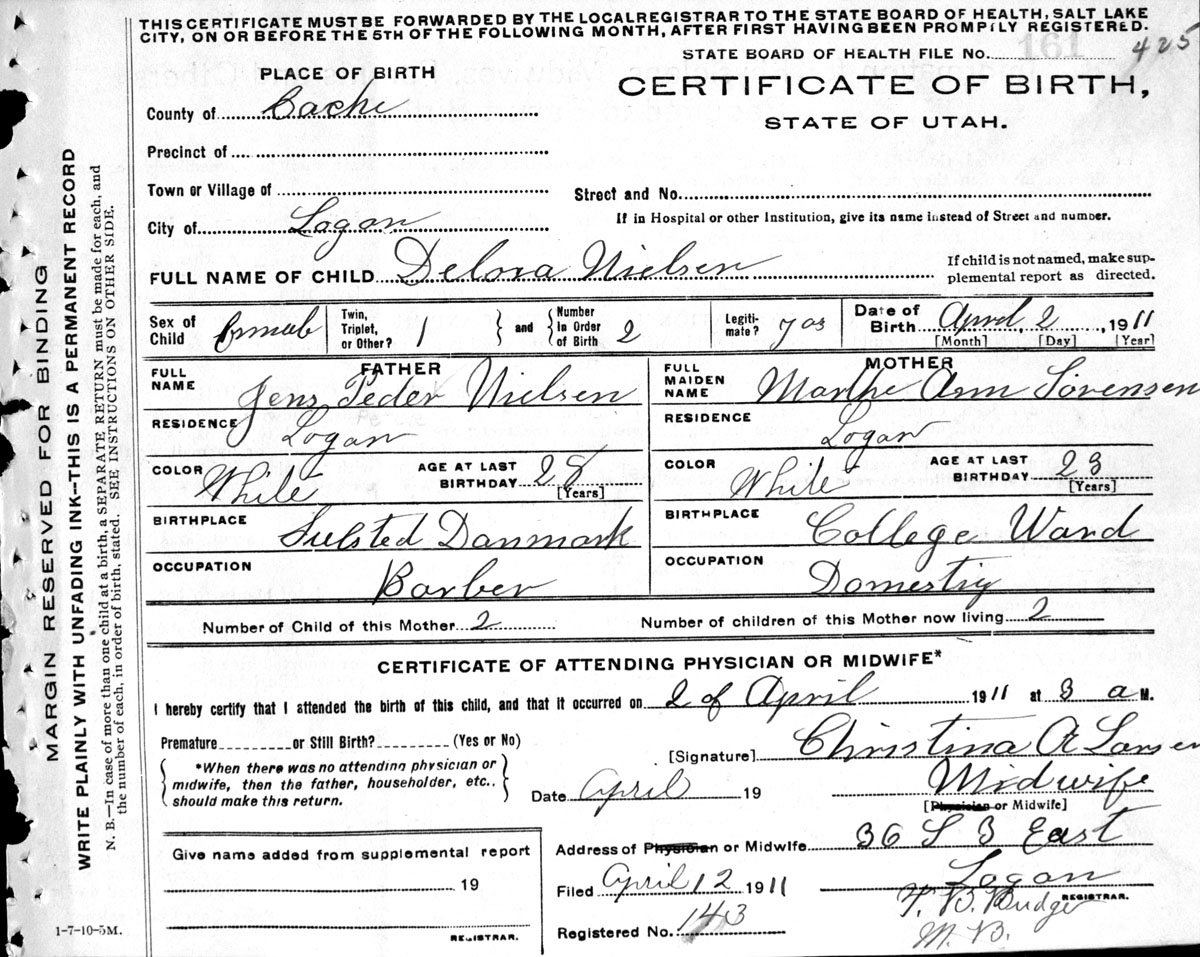 THIS CERTIFICATE MUST BE FORWARDED BY THE LOCAL REGISTRAR TO THE STATE BOARD OF HEALTH, SALT LAKE
CITY, ON OR BEFORE THE 5TH OF THE FOLLOWING MONTH, AFTER FIRST HAVING BEEN PROMPTLY REGISTERED.
STATE BOARD OF HEALTH FILE No. 161 425
PLACE OF BIRTH
CERTIFICATE OF BIRTH,
STATE OF UTAH.
County of Cache
Precinct of
Town or Village of
Street and No.
City of Logan
If in Hospital or other Institution, give its name instead of Street and number.
FULL NAME OF CHILD Delora Nielsen
If child is not named, make sup-
plemental report as directed.
Sex of Child Female
Twin, Triplet, or Other? 1
and Number in Order of Birth 2
Legiti-mate? yas
Date of Birth April 2, 1911
[Month] [Day] [Year]
FATHER
FULL NAME Jens Peder Nielsen
MOTHER
FULL MAIDEN NAME Marthe Ann Sorensen
RESIDENCE Logan
RESIDENCE Logan
COLOR White AGE AT LAST BIRTHDAY 28 [Years]
COLOR White AGE AT LAST BIRTHDAY 23 [Years]
BIRTHPLACE Sulsted Danmark
BIRTHPLACE College Ward
OCCUPATION Barber
OCCUPATION Domestig
Number of Child of this Mother 2 Number of children of this Mother now living 2
CERTIFICATE OF ATTENDING PHYSICIAN OR MIDWIFE*
I hereby certify that I attended the birth of this child, and that it occurred on 2 of April 1911 at 3 a M.
Premature or Still Birth? (Yes or No)
[Signature] Christina A Larsen
*When there was no attending physician or
midwife, then the father, householder, etc.,
should make this return.
Date April 19
Midwife
[Physician or Midwife]
Give name added from supplemental report
19
REGISTRAR.
Address of Physician or Midwife 36 S 3 East
Logan
Filed April 12 1911
REGISTRAR.
Registered No. 143
1-7-10-5M.
MARGIN RESERVED FOR BINDING
WRITE PLAINLY WITH UNFADING INK—THIS IS A PERMANENT RECORD
N. B.—In case of more than one child at a birth, a SEPARATE RETURN must be made for each, and
the number of each, in order of birth, stated. SEE INSTRUCTIONS ON OTHER SIDE.